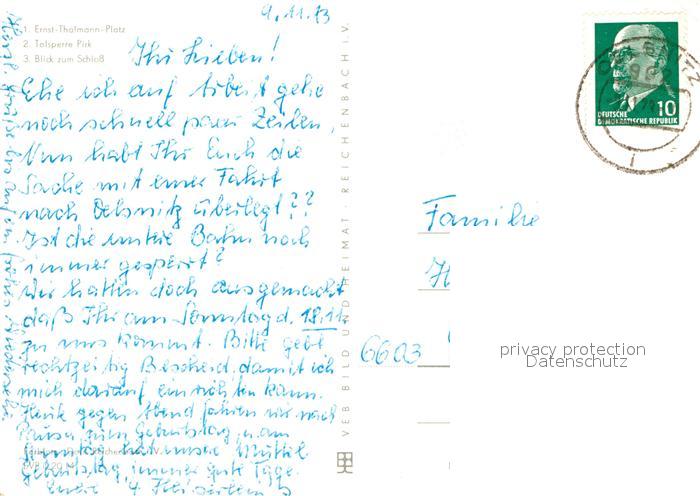 9.11.73
1. Ernst-Thälmann-Platz
2. Talsperre Pirk
3. Blick zum Schloß
Ihr Lieben!
Ehe ich auf Arbeit gehe
noch schnell paar Zeilen,
Nun habt Ihr Euch die
Sache mit einer Fahrt
nach Oelsnitz überlegt??
Ist die untere Bahn noch
immer gesperrt?
Wir hatten doch ausgemacht
daß Ihr am Sonntag d. 18.11.
zu uns kommt. Bitte gebt
rechtzeitig Bescheid, damit ich
mich darauf einrichten kann.
Heute gegen Abend fahren wir nach
Pausa zum Geburtstag u. am
hat unsre Mutter
Geburtstag, immer gute Tage.
Eure 4
VEB BILD UND HEIMAT · REICHENBACH I. V.
DEUTSCHE
DEMOKRATISCHE REPUBLIK
10
Familie
H
6603
privacy protection
Datenschutz